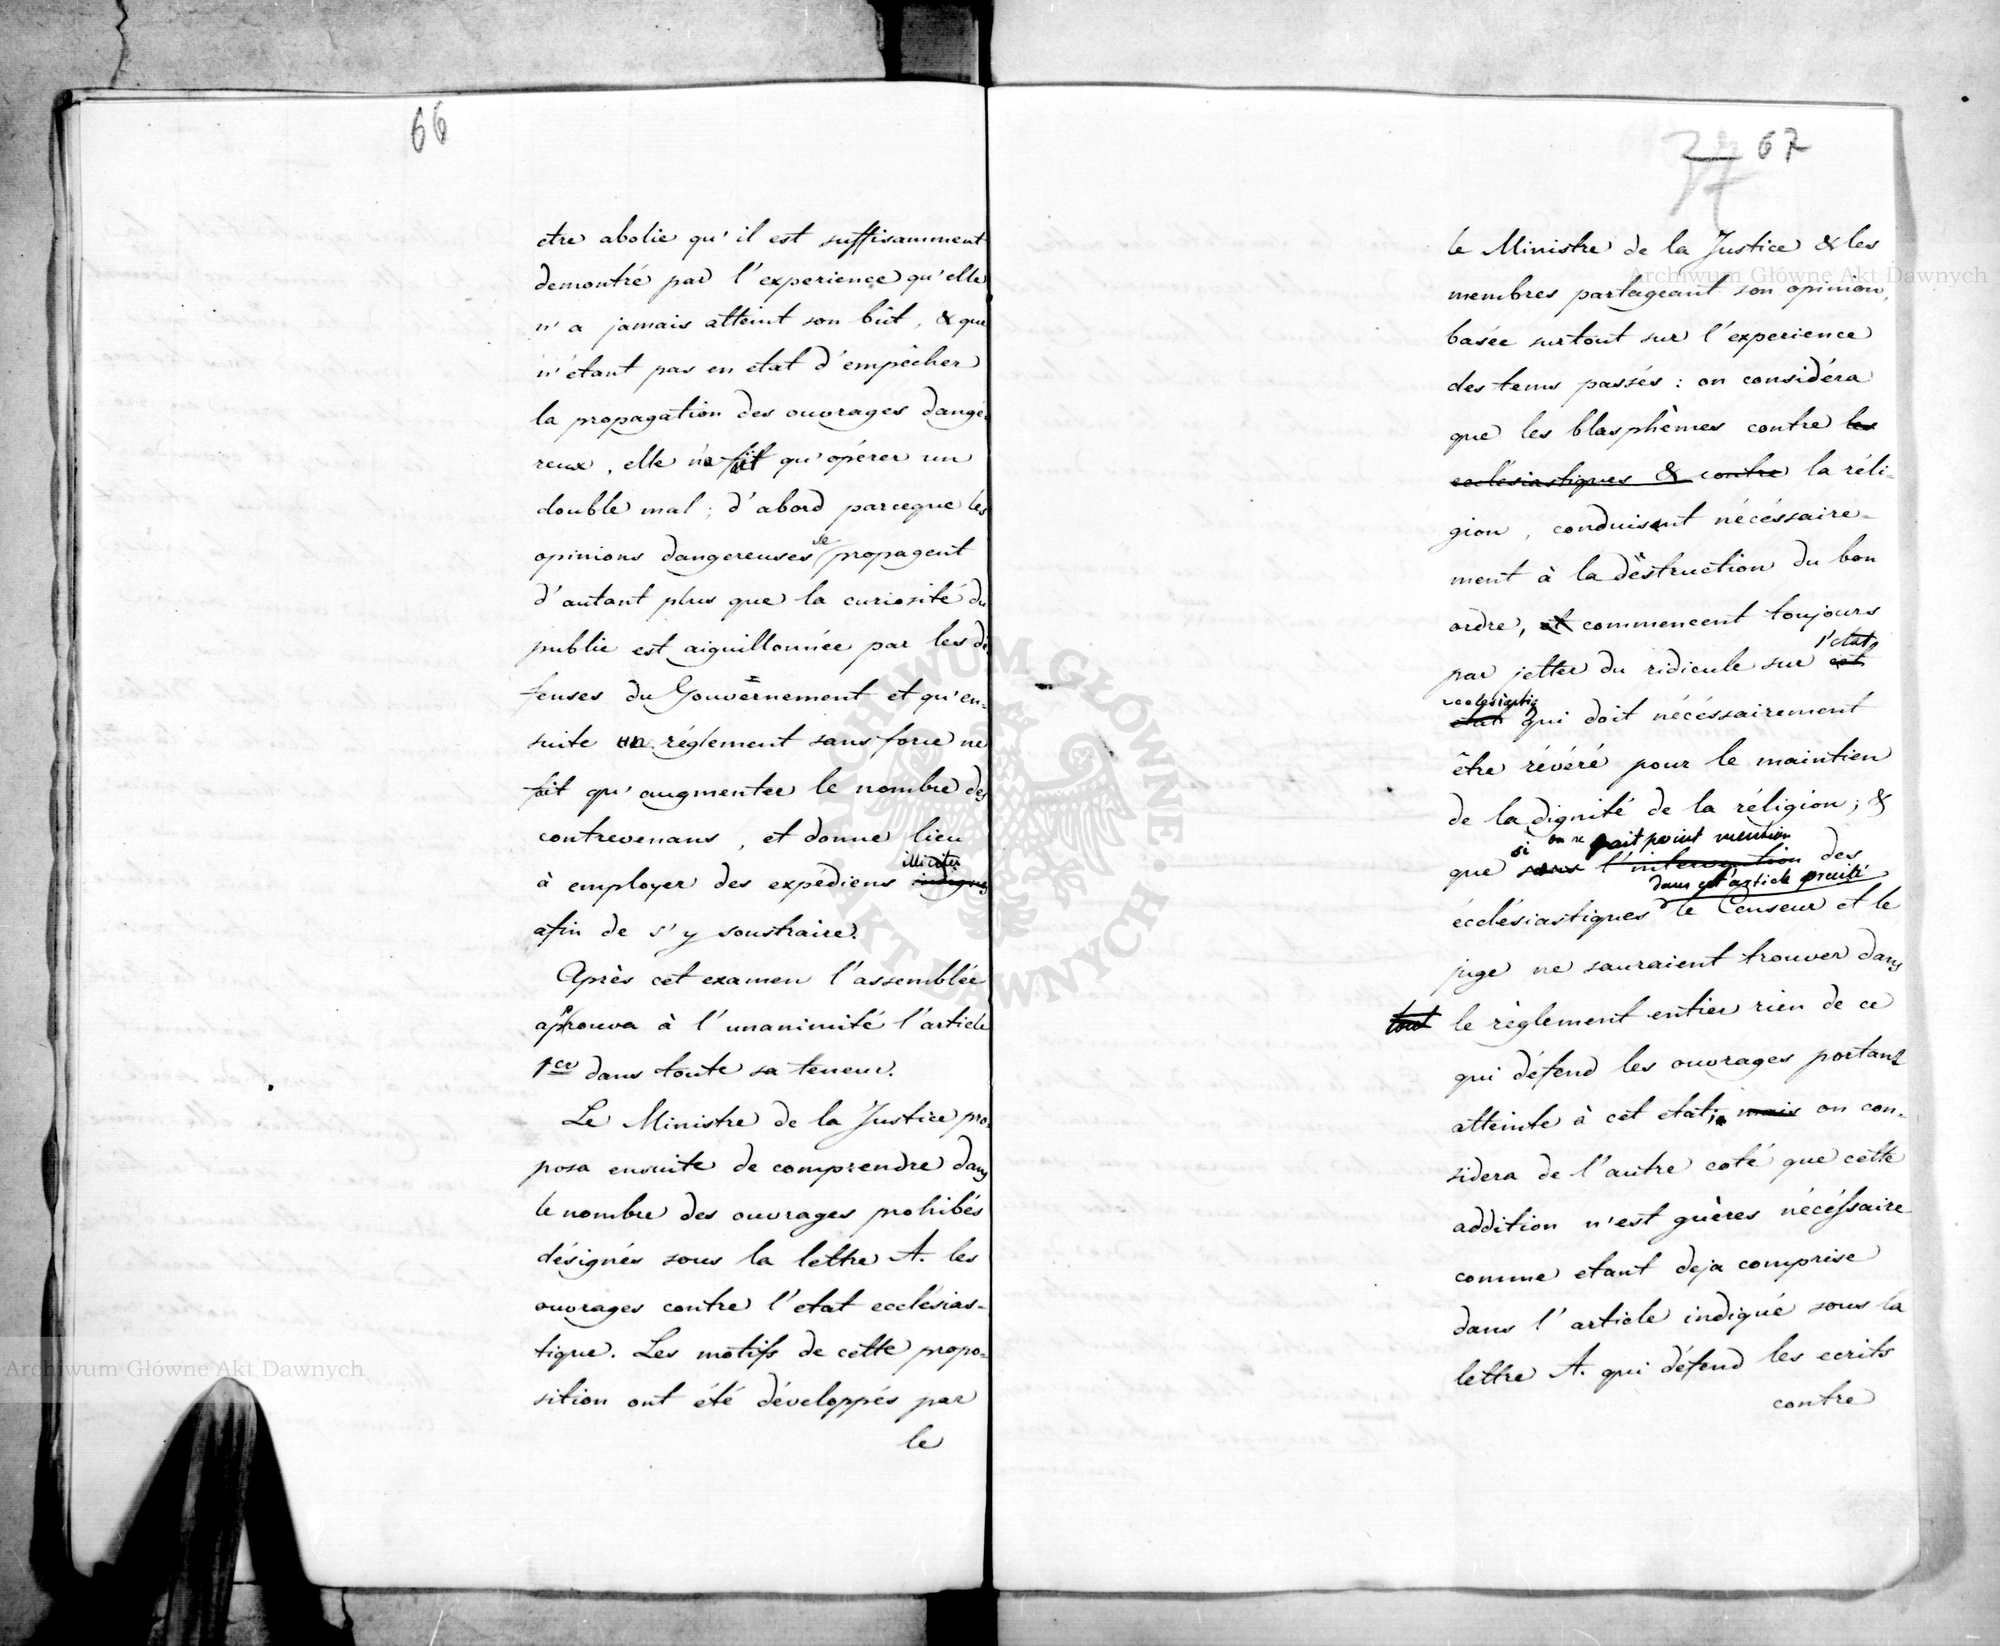 66
etre abolie qu'il est suffisamment
demontré par l'experience qu'elle
n'a jamais atteint son bût, & que
n'étant pas en etat d'empêcher
la propagation des ouvrages dangé-
reux, elle ne fit qu'opérer un
double mal; d'abord parceque les
opinions dangereuses se propagent
d'autant plus que la curiosité du
public est aiguillonnée par les dé-
fenses du Gouvernement et qu'en-
suite un réglement sans force ne
fait qu'augmenter le nombre des
contrevenans, et donne lieu
illicites
à employer des expédiens indignes
afin de s'y soustraire.
Après cet examen l'assemblée
approuva à l'unanimité l'article
1er dans toute sa teneur.
Le Ministre de la Justice pro-
posa ensuite de comprendre dans
le nombre des ouvrages prohibés
désignés sous la lettre A. les
ouvrages contre l'etat ecclésias-
tique. Les motifs de cette propo-
sition ont été développés par
le
37 67
le Ministre de la Justice & les
membres partageant son opinion,
basée surtout sur l'experience
des tems passés: on considéra
que les blasphèmes contre les
ecclésiastiques & contre la réli-
gion, conduisent nécéssaire-
ment à la déstruction du bon
ordre, et commencent toujours
l'etat
par jetter du ridicule sur cet
ecclesiastiq
etat qui doit nécéssairement
être révéré pour le maintien
de la dignité de la réligion; &
si on ne fait point mention
que sans l'intervention des
dans cet article précité
écclésiastiques le Censeur et le
juge ne sauraient trouver dans
tout le règlement entier rien de ce
qui défend les ouvrages portant
atteinte à cet etat; mais on con-
sidera de l'autre coté que cette
addition n'est guères nécéssaire
comme etant deja comprise
dans l'article indiqué sous la
lettre A. qui défend les ecrits
contre
Archiwum Główne Akt Dawnych
Archiwum Główne Akt Dawnych
ARCHIWUM GŁÓWNE AKT DAWNYCH